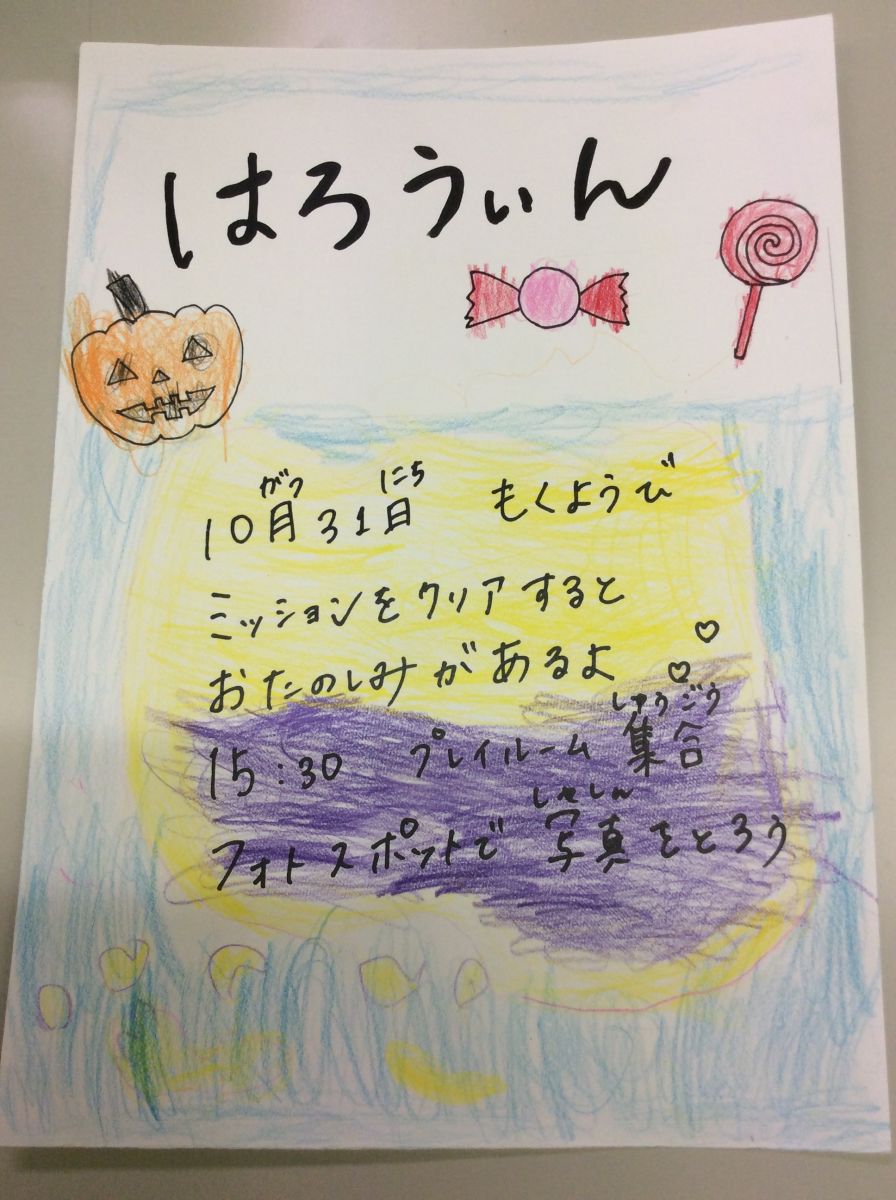 はろうぃん
がつ にち
10月31日 もくようび
ミッションをクリアすると
おたのしみがあるよ♡♡
しゅうごう
15:30 プレイルーム 集合
しゃしん
フォトスポットで 写真をとろう